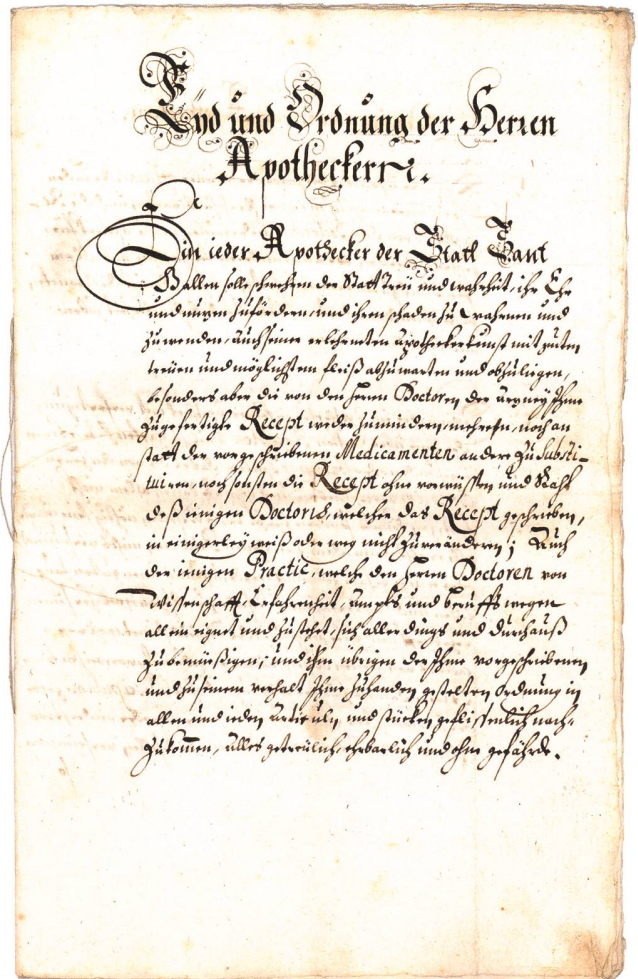 Eyd und Ordnung der Herren
Apotheckern.
Ein ieder Apothecker der Statt Sant
Gallen solle schwehren der Statt Treü und wahrheit, ihr Ehr
und nuzen zufördern, und ihren schaden zu wahrnen und
zuwenden, auch seiner erlehrneten apotheckerkunst mit guten
treüen und möglichstem fleiß abzuwarten und obzuligen,
besonders aber die von den Herren Doctoren der arzney Ihme
zugefertigte Recept weder zumindern, mehren, noch an
statt der vorgeschriebenen Medicamenten andere zu substi-
tuiren, noch sonsten die Recept ohne vorwüssen und Raht
deß ienigen Doctoris, welcher das Recept geschrieben,
in einigerley weiß oder weg nicht zuveränderen; Auch
der ienigen Practic, welche den Herren Doctoren von
Wissenschafft, Erfahrenheit, ampts und beruffs wegen
allein eignet und zustehet, sich aller dings und durchauß
zubemüeßigen; und ihm übrigen der Ihme vorgeschriebenen
und zu seinem verhalt Ihme zuhanden gestelten Ordnung in
allen und ieden articuln und stücken geflissenlich nach-
zukommen, alles getreülich, ehrbarlich und ohne gefährde.